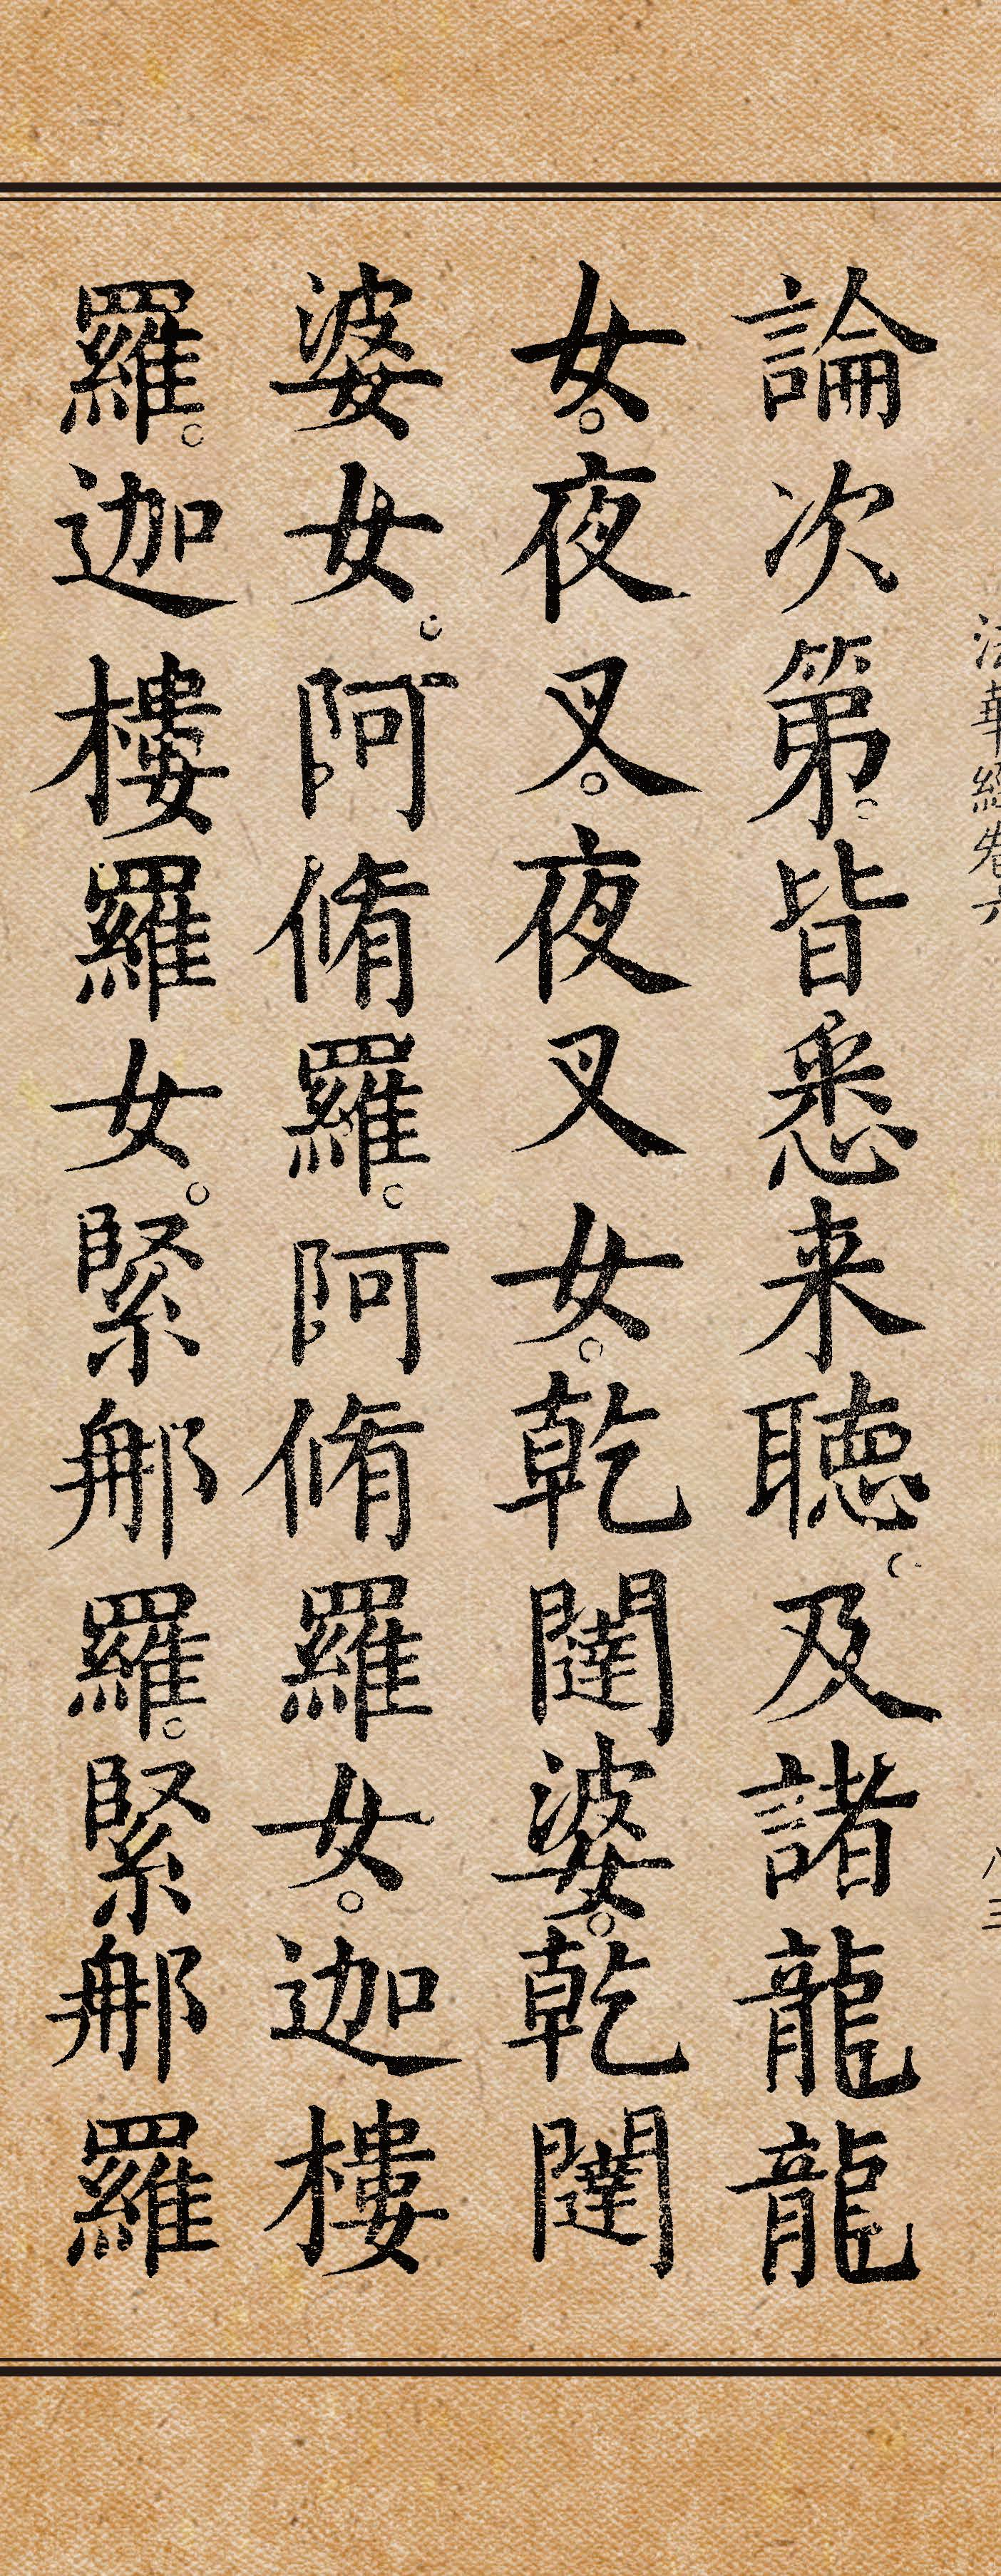 法華經卷六 八三
論次第。皆悉来聽。及諸龍龍
女。夜叉。夜叉女。乾闥婆。乾闥
婆女。阿脩羅。阿脩羅女。迦樓
羅。迦樓羅女。緊那羅。緊那羅